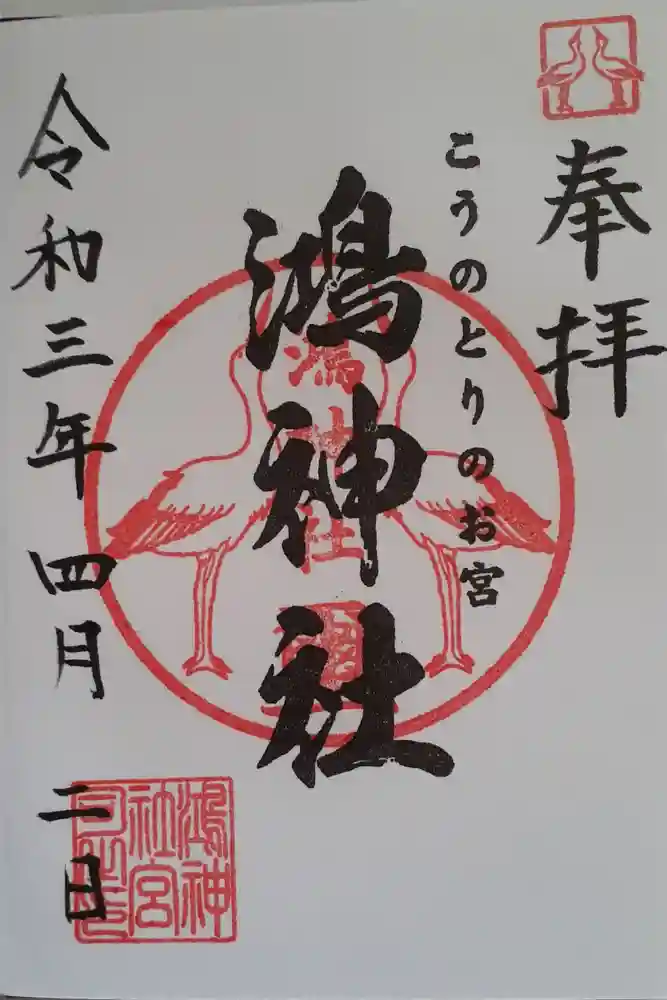 奉拝
こうのとりのお宮
鴻神社
鴻神社
令和三年四月二日
鴻神社宮司之印